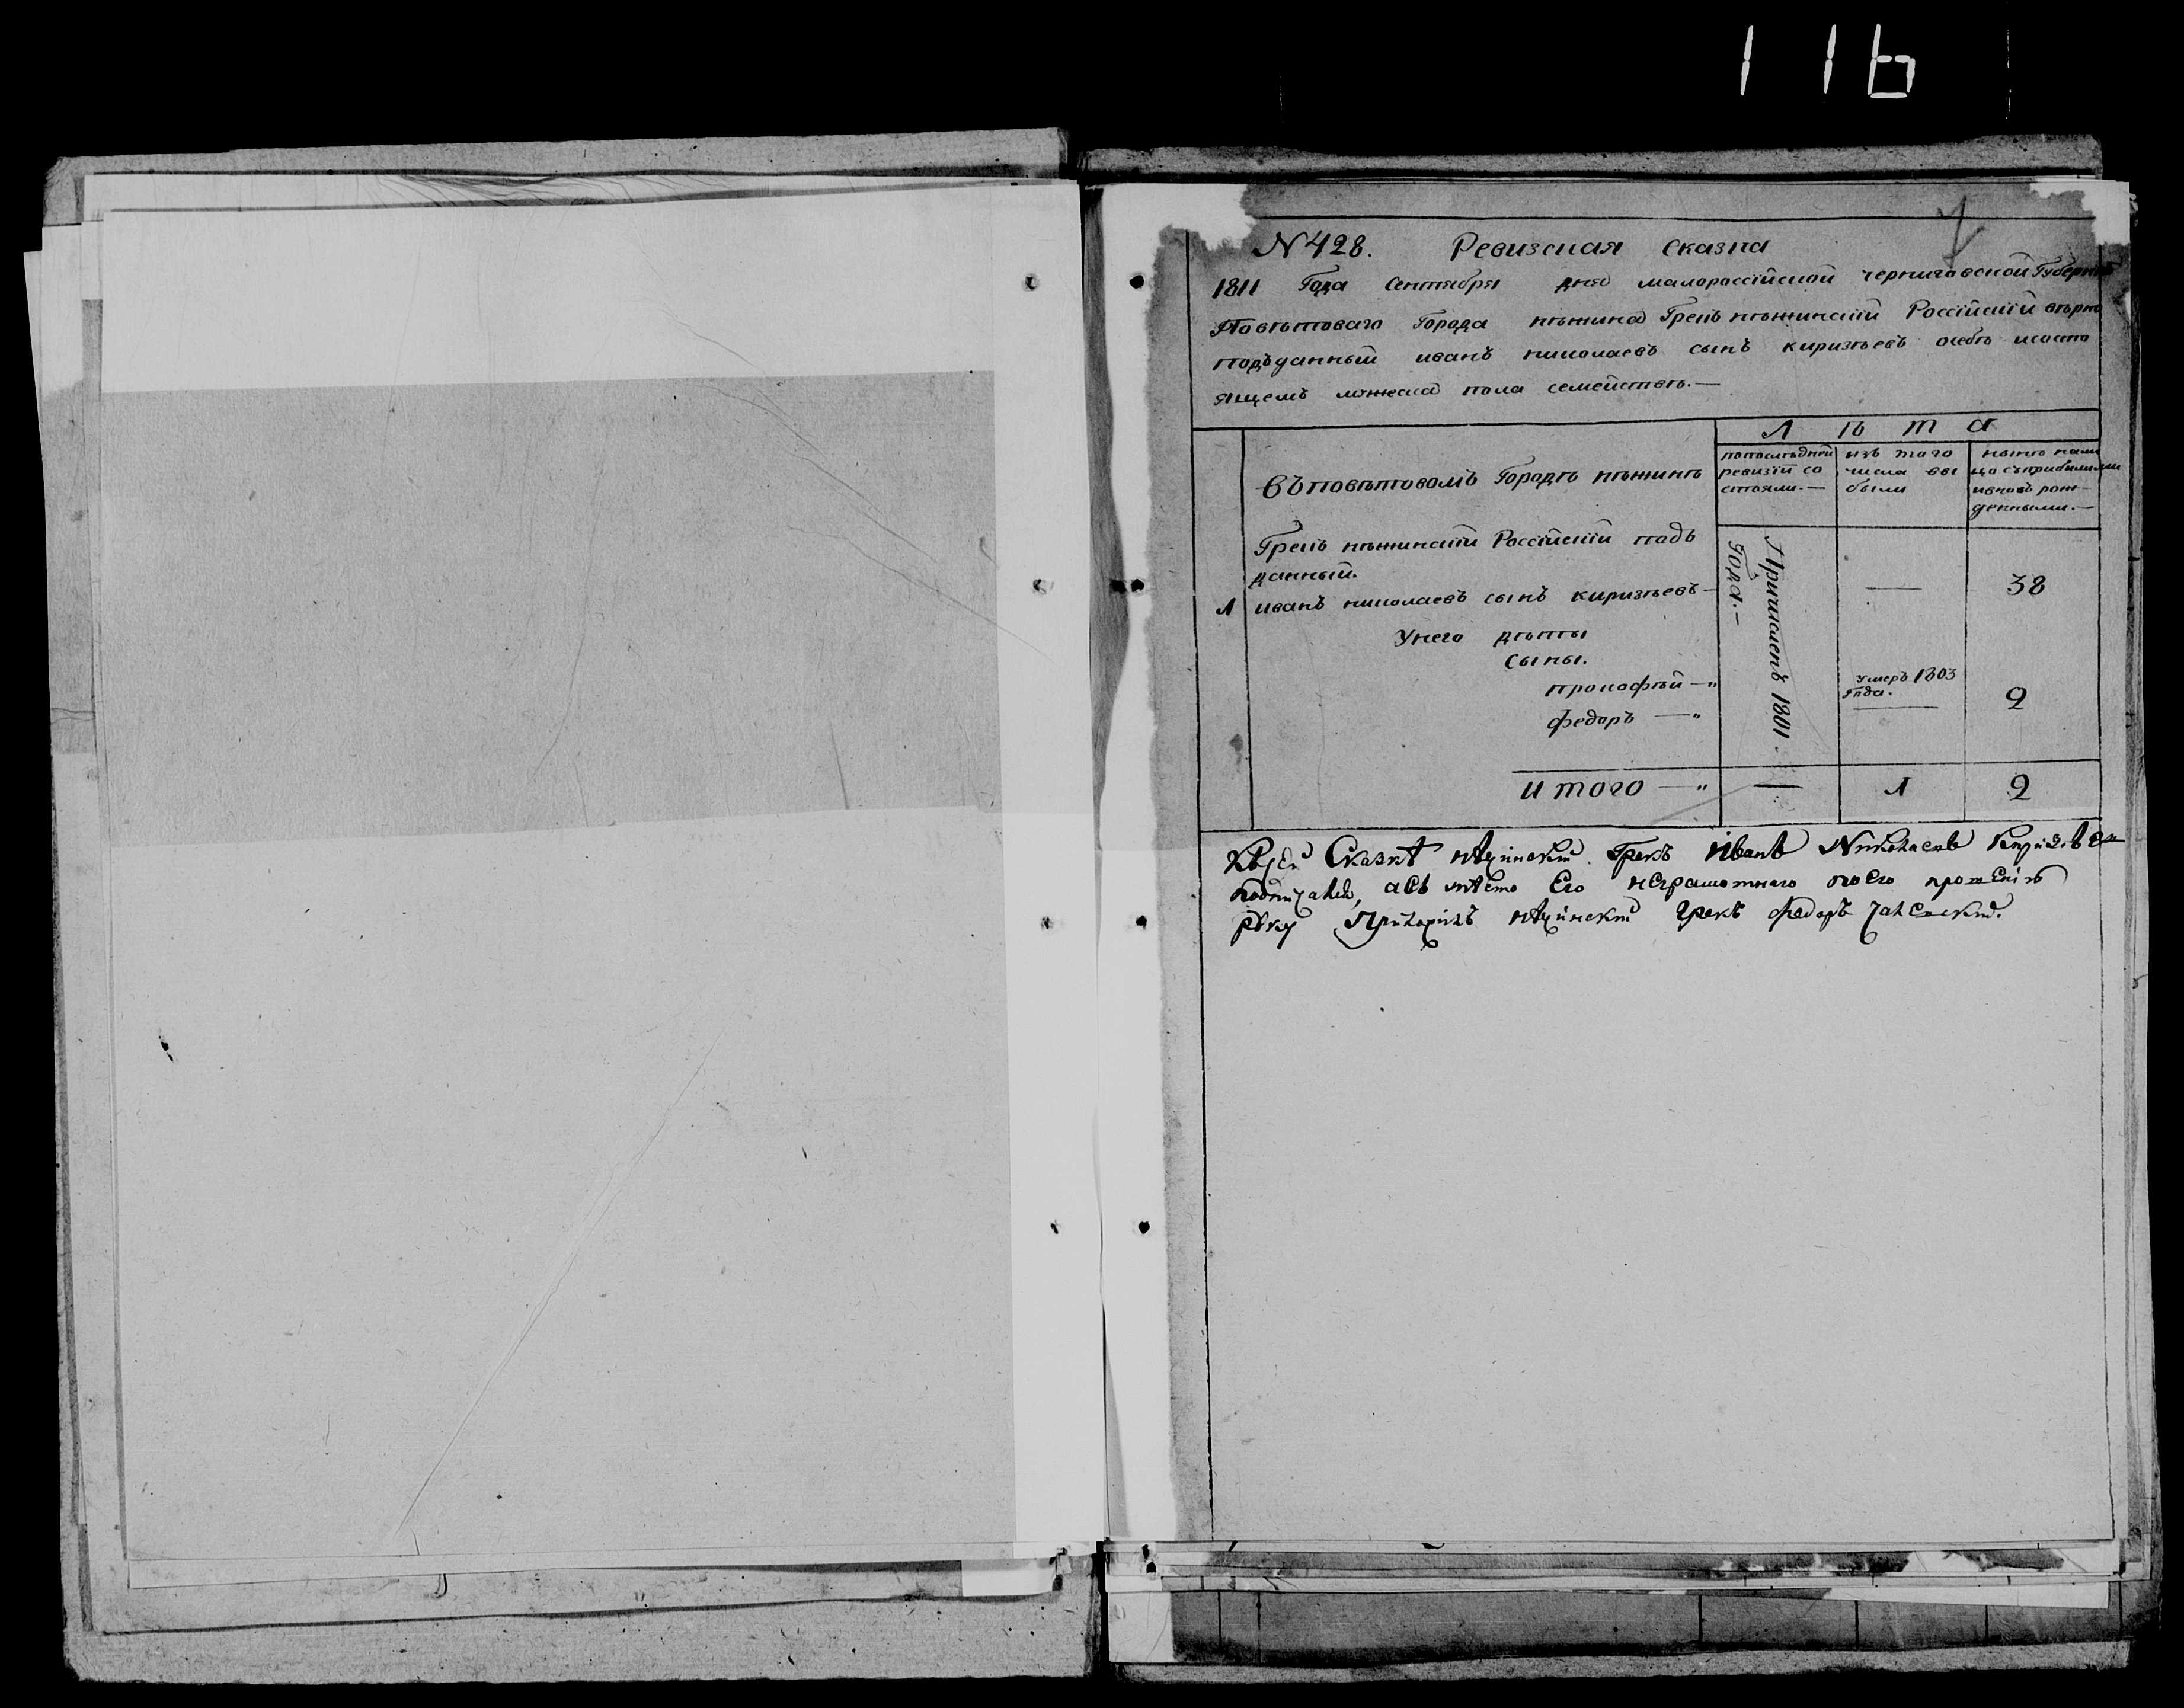 116
N 428. Ревизская сказка
1811 Года Сентября дня малороссїйской черниговской Губернїи
Повѣтоваго Города нѣжина Грекъ нѣжинскїй Россїйскїй вѣрно
подъданный иванъ николаевъ сынъ киризѣевъ осебѣ исосто
ящемъ мужеска пола семействѣ.—
Лѣта
въ повѣтовомъ Городѣ нѣжинѣ
попослѣдней ревизїи со стояли.—
изъ того числа вы были
нынѣ нали цо съприбылыми ивновь рож- денными.—
Грекъ нѣжинскїй Россїйскїй подъ
данный.
1 иванъ николаевъ сынъ киризѣевъ — 38
Приписленъ 1801
Года.—
Унего дѣти
сыны.
прокофѣй —„ умеръ 1803 года.
федоръ —„ — 2
итого —„ — 1 2
Ксей Сказкѣ нѣжинский Грекъ Иванъ Николаевъ Киризѣевъ
подписался, авъ мѣсто Его неграмотнаго поего прошенїю
рѣку Приложилъ нѣжинский Грекъ федоръ